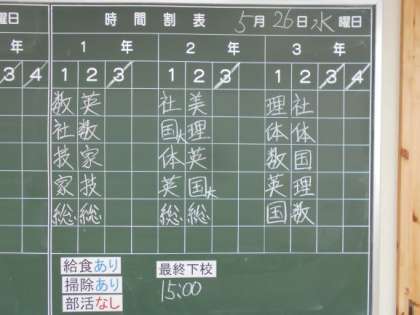 曜日 時間割表 5月26日水曜日
年 1年 2年 3年
3 4 1 2 3 1 2 3 1 2 3 4
数 英 社 美 理 社
社 数 国大 理 体 体
技 家 体 英 数 国
家 技 英 国大 英 理
総 総 総 総 国 数
給食あり 最終下校
掃除あり 15:00
部活なし